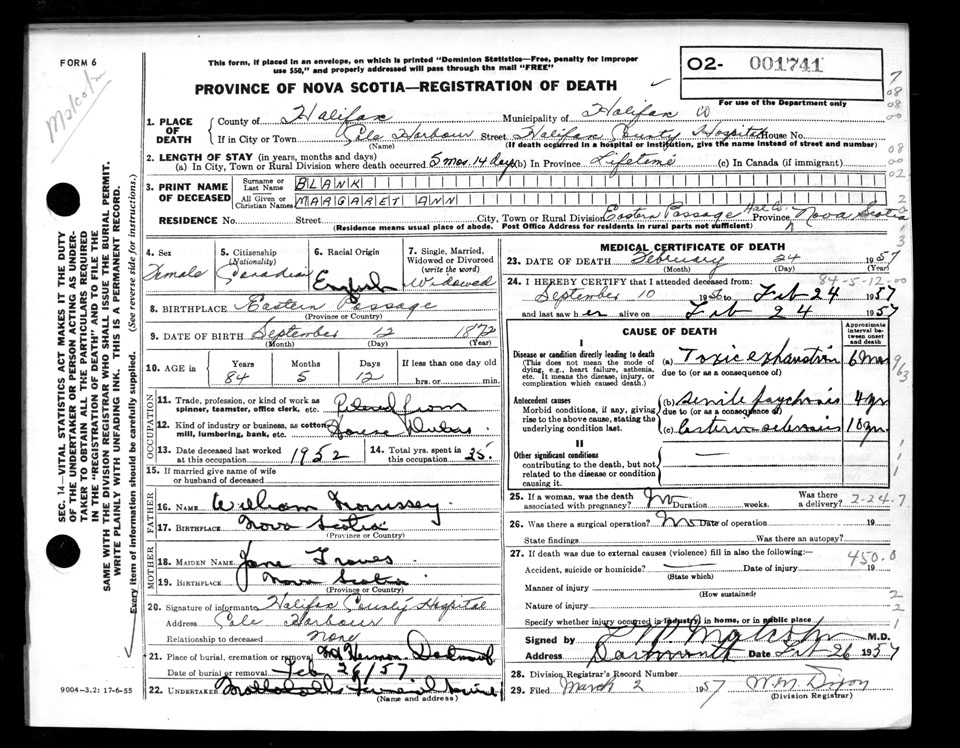 FORM 6
Malcolm
This form, if placed in an envelope, on which is printed "Dominion Statistics—Free, penalty for improper
use $50," and properly addressed will pass through the mail "FREE"
PROVINCE OF NOVA SCOTIA—REGISTRATION OF DEATH
02- 001741
For use of the Department only
1. PLACE OF DEATH County of Halifax Municipality of Halifax Co
If in City or Town Cole Harbour Street Halifax County Hospital House No.
(Name) (If death occurred in a hospital or institution, give the name instead of street and number)
2. LENGTH OF STAY (in years, months and days)
(a) In City, Town or Rural Division where death occurred 5 mos. 14 days (b) In Province Lifetime (c) In Canada (if immigrant)
3. PRINT NAME OF DECEASED Surname or Last Name BLANK
All Given or Christian Names MARGARET ANN
RESIDENCE No. Street City, Town or Rural Division Eastern Passage Hal Co. Province Nova Scotia
(Residence means usual place of abode. Post Office Address for residents in rural parts not sufficient)
4. Sex Female
5. Citizenship (Nationality) Canadian
6. Racial Origin English
7. Single, Married, Widowed or Divorced (write the word) Widowed
8. BIRTHPLACE Eastern Passage
(Province or Country)
9. DATE OF BIRTH September 12 1872
(Month) (Day) (Year)
10. AGE in Years Months Days If less than one day old
84 5 12 hrs. or min.
OCCUPATION
11. Trade, profession, or kind of work as
spinner, teamster, office clerk, etc. Retired from
12. Kind of industry or business, as cotton
mill, lumbering, bank, etc. House Duties
13. Date deceased last worked at this occupation 1952
14. Total yrs. spent in this occupation 35.
15. If married give name of wife
or husband of deceased
FATHER
16. NAME William
17. BIRTHPLACE Nova Scotia
(Province or Country)
MOTHER
18. MAIDEN NAME Jane
19. BIRTHPLACE Nova Scotia
(Province or Country)
20. Signature of informant Halifax County Hospital
Address Cole Harbour
Relationship to deceased None
21. Place of burial, cremation or removal Mt Hermon Dartmouth
Date of burial or removal Feb 26/57
22. UNDERTAKER Funeral
(Name and address)
9004-3.2: 17-6-55
MEDICAL CERTIFICATE OF DEATH
23. DATE OF DEATH February 24 1957
(Month) (Day) (Year)
84-5-12-00
24. I HEREBY CERTIFY that I attended deceased from:
September 10 1956 to Feb 24 1957
and last saw her alive on Feb 24 1957
CAUSE OF DEATH
Approximate interval between onset and death
I
Disease or condition directly leading to death
(This does not mean the mode of dying, e.g., heart failure, asthenia, etc. It means the disease, injury, or complication which caused death.)
(a) Toxic exhaustion 6 mos
due to (or as a consequence of)
Antecedent causes
Morbid conditions, if any, giving rise to the above cause, stating the underlying condition last.
(b) Senile psychosis 4 yr
due to (or as a consequence of)
(c) sclerosis 10 yr.
II
Other significant conditions
contributing to the death, but not related to the disease or condition causing it.
25. If a woman, was the death associated with pregnancy? No Duration weeks. Was there a delivery? 2-24-7
26. Was there a surgical operation? No Date of operation 19
State findings Was there an autopsy?
27. If death was due to external causes (violence) fill in also the following:— 450.0
Accident, suicide or homicide? Date of injury 19
(State which)
Manner of injury
(How sustained)
Nature of injury
Specify whether injury occurred in industry, in home, or in public place
Signed by Malcolm M.D.
Address Dartmouth Date Feb 26 1957
28. Division Registrar's Record Number
29. Filed March 2 1957 W.M. Dixon
(Division Registrar)
SEC. 14—VITAL STATISTICS ACT MAKES IT THE DUTY
OF THE UNDERTAKER OR PERSON ACTING AS UNDERTAKER TO OBTAIN ALL THE PARTICULARS REQUIRED
IN THE "REGISTRATION OF DEATH" AND TO FILE THE
SAME WITH THE DIVISION REGISTRAR WHO SHALL ISSUE THE BURIAL PERMIT.
WRITE PLAINLY WITH UNFADING INK. THIS IS A PERMANENT RECORD.
Every item of information should be carefully supplied. (See reverse side for instructions.)